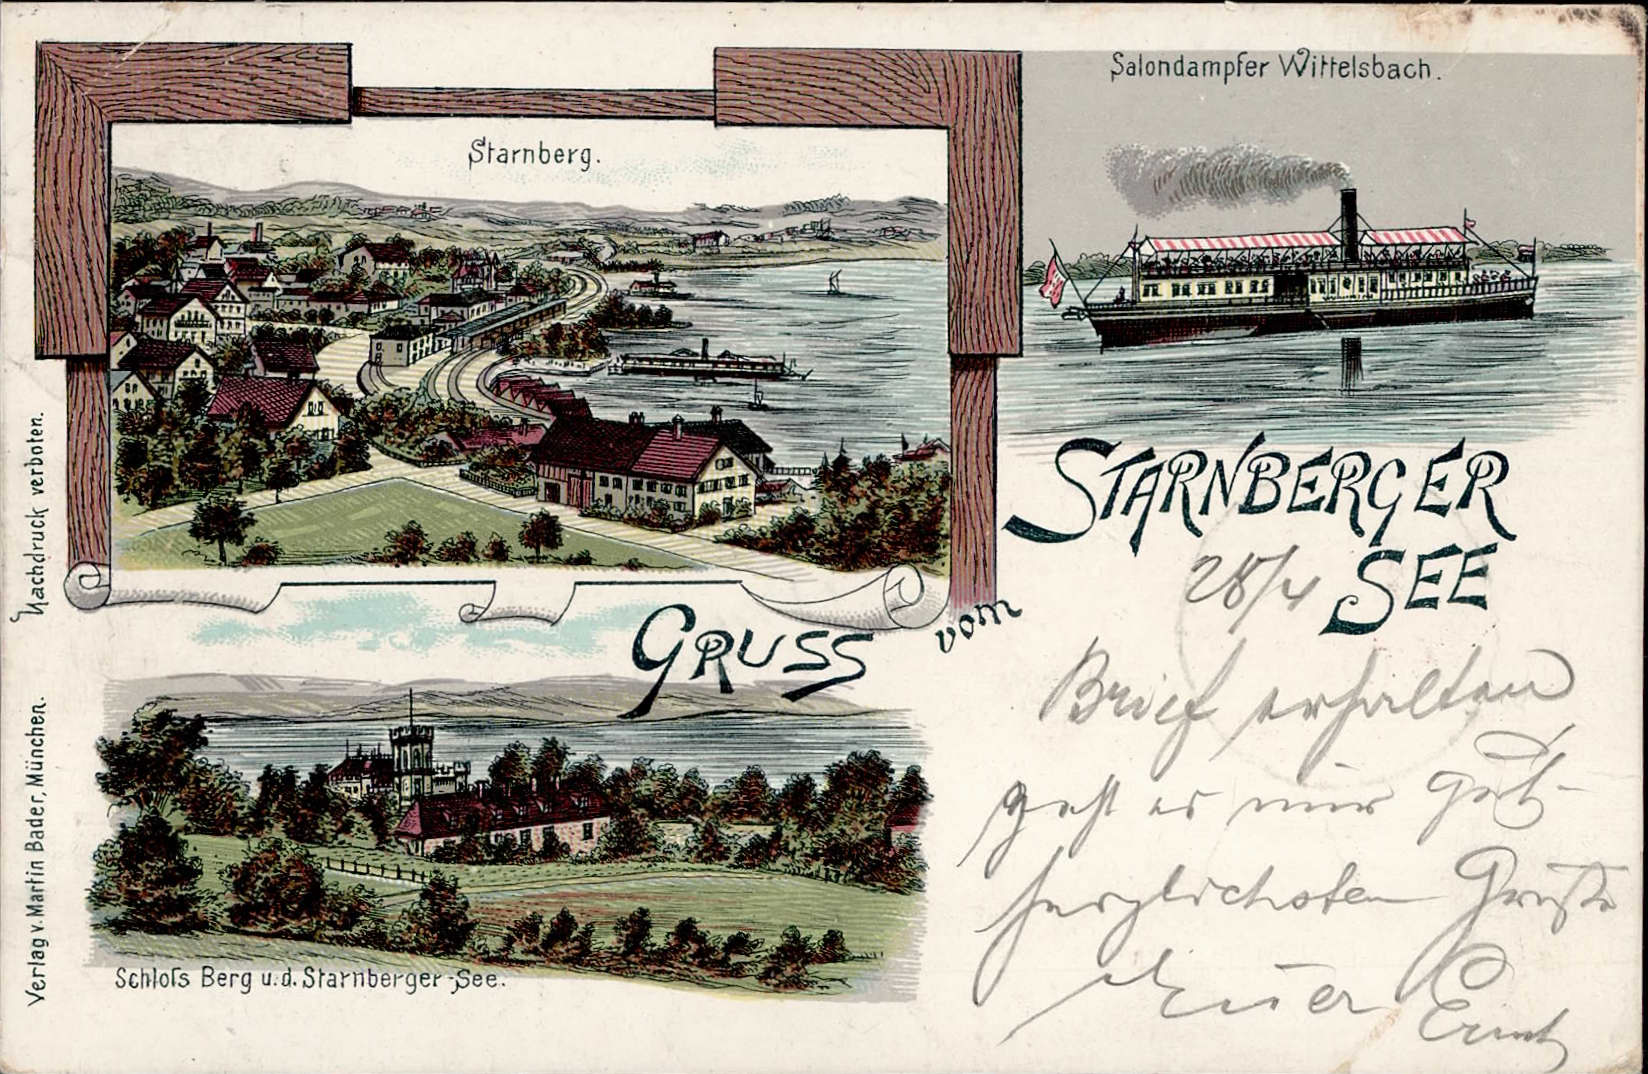 Salondampfer Wittelsbach.
Starnberg.
Gruss vom
STARNBERGER
SEE
28/4
Brief erhalten
geht es mir gut.
herzlichsten Grüße
Euer
Ernst
Schloſs Berg u. d. Starnberger-See.
Nachdruck verboten.
Verlag v. Martin Bader, München.